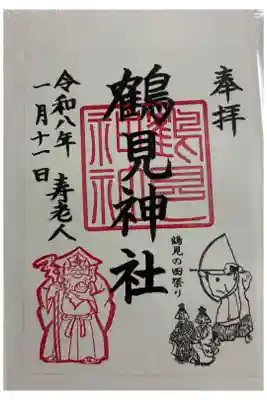 奉拝
鶴見神社
鶴見神社
鶴見の田祭り
令和八年
一月十一日
寿老人